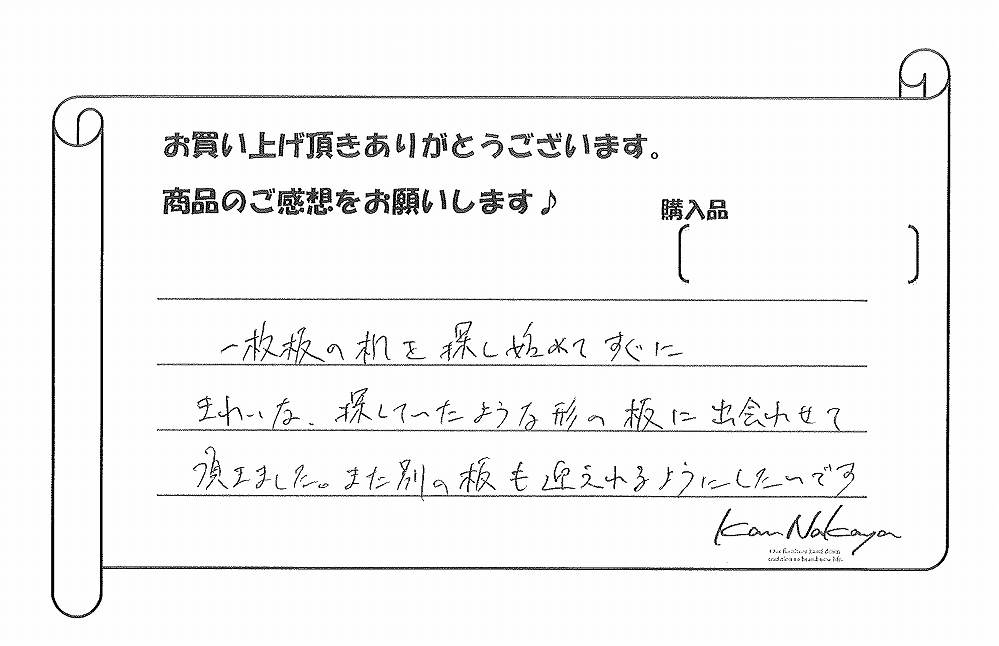 お買い上げ頂きありがとうございます。
商品のご感想をお願いします♪
購入品
一枚板の机を探し始めてすぐに
きれいな、探していたような形の板に出会わせて
頂きました。また別の板も迎えれるようにしたいです
Kan Nakaya
Our furniture hand down